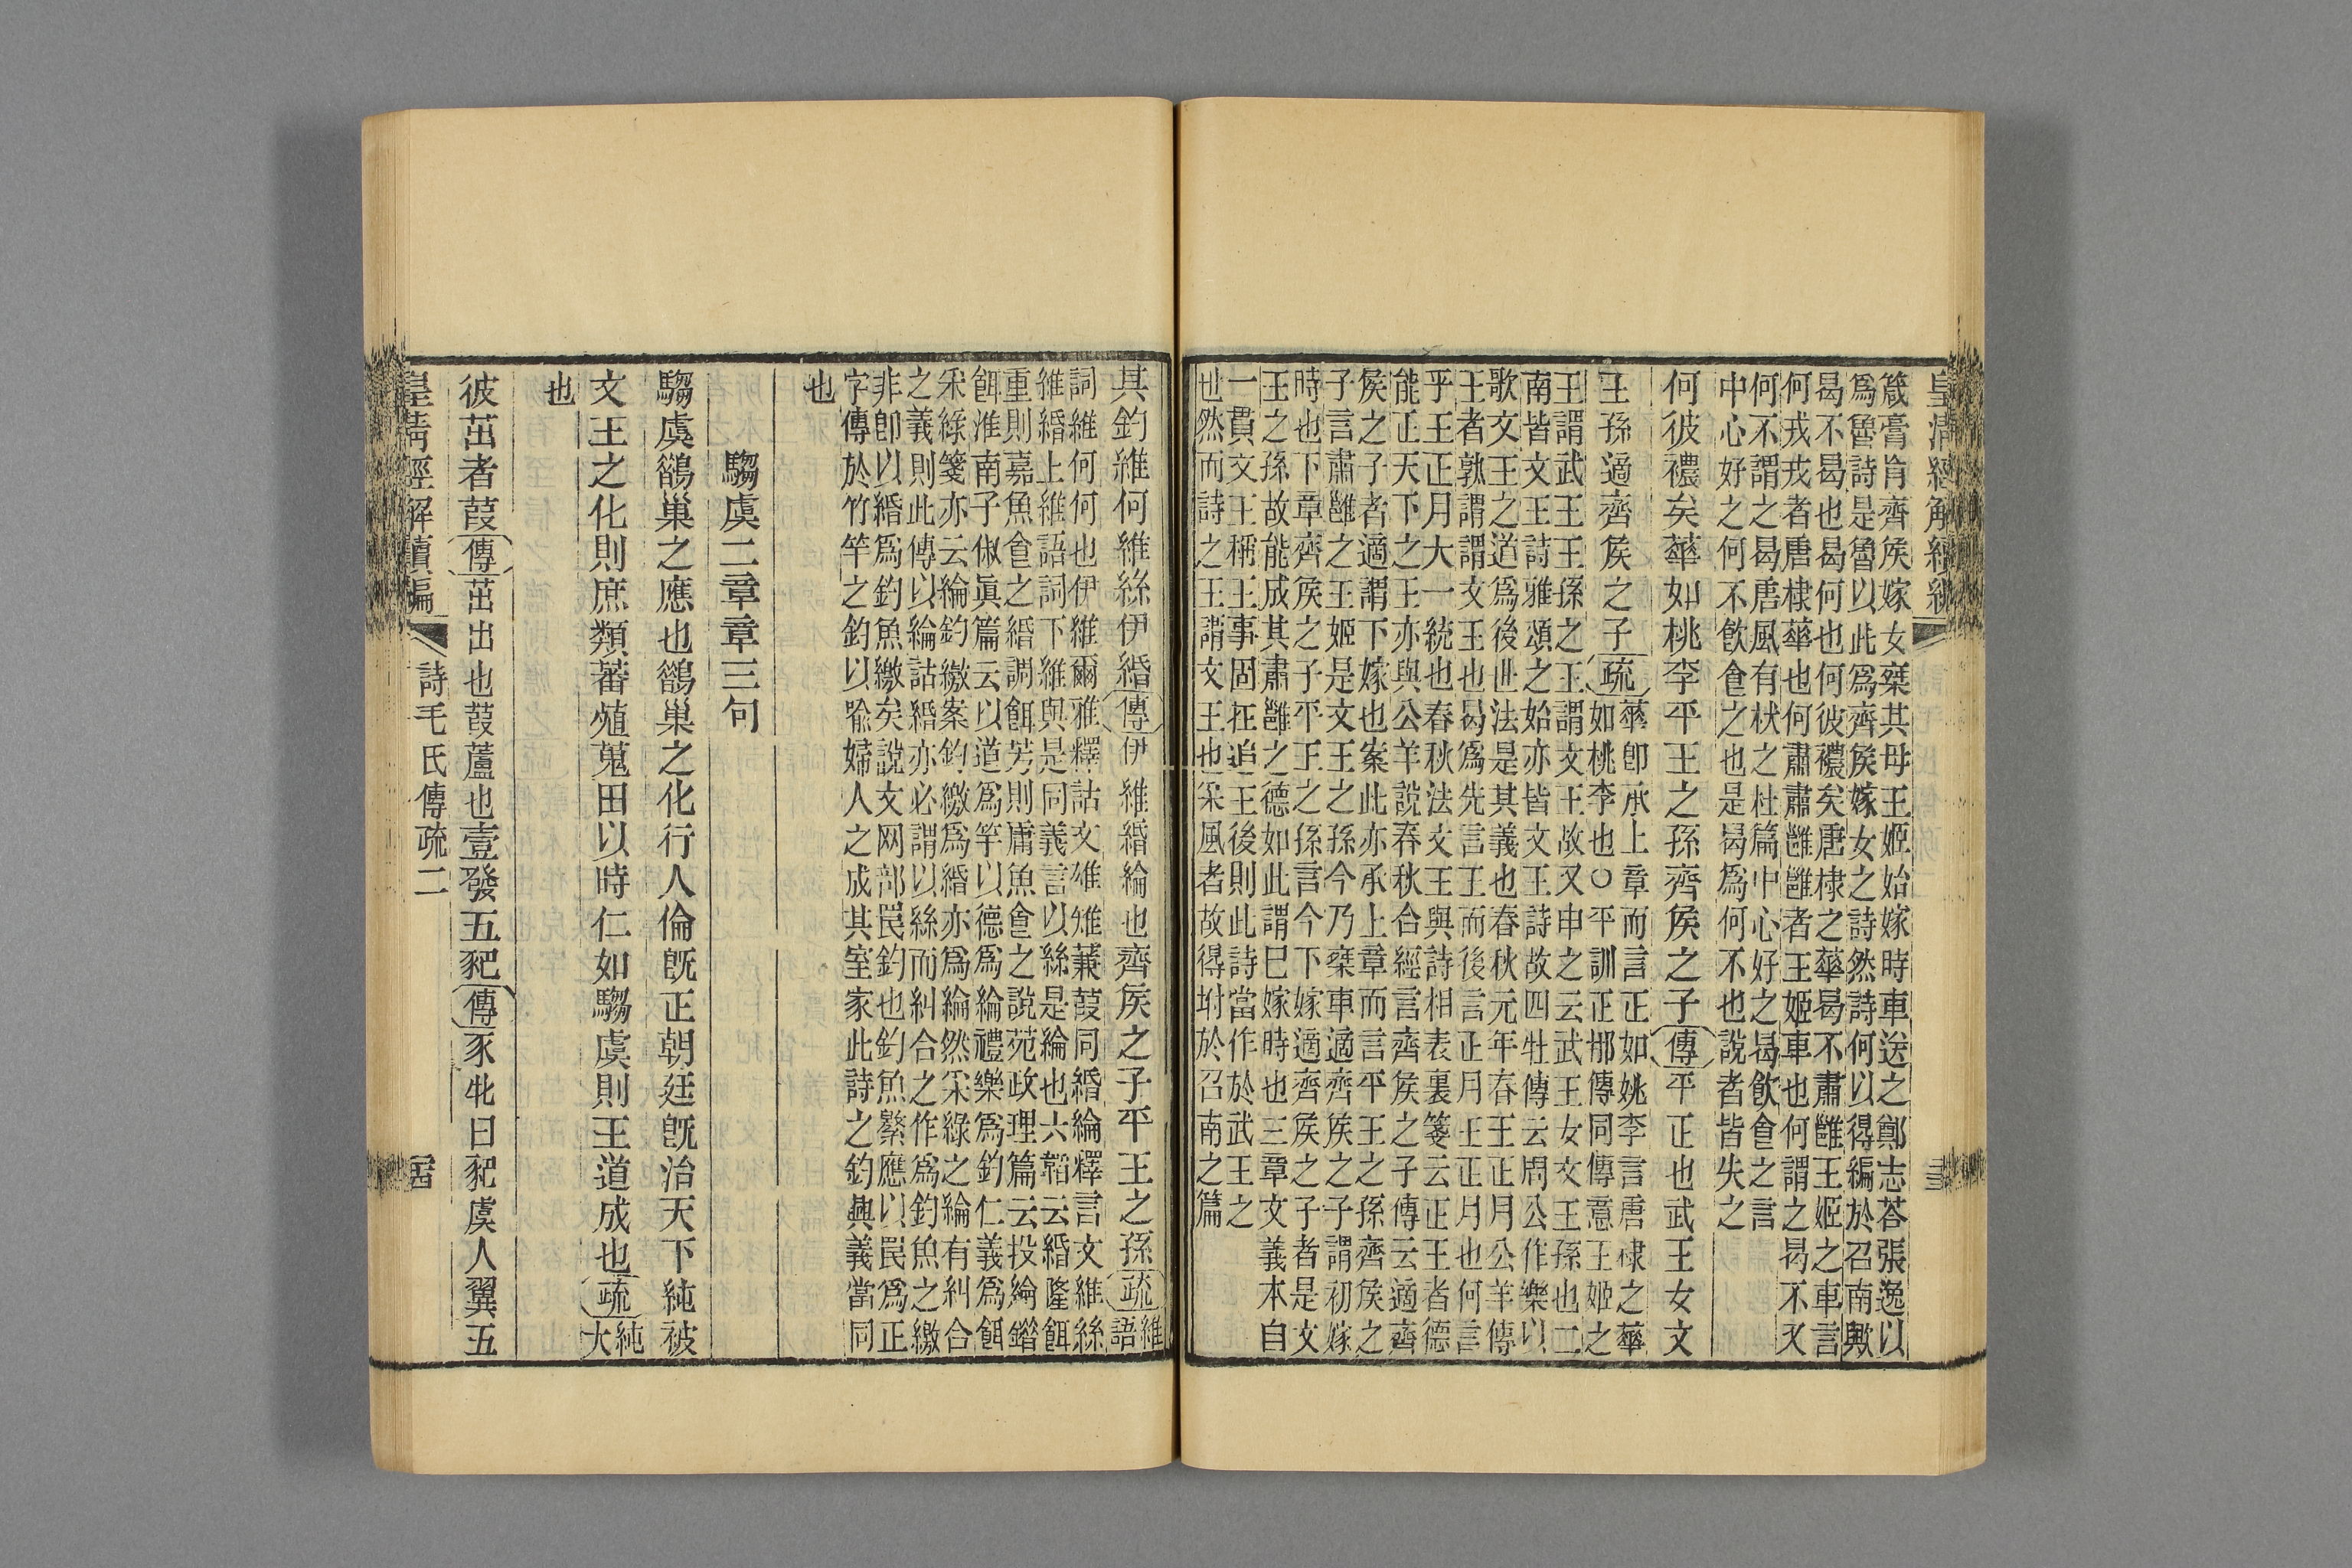 皇清經解續編
箴膏肓齊矦嫁女椉其母王姬始嫁時車送之鄭志荅張逸以
爲魯詩是魯以此爲齊矦嫁女之詩然詩何以得編於召南歟
曷不曷也曷何也何彼襛矣唐棣之華曷不肅雝王姬之車言
何戎戎者唐棣華也何肅肅雝雝者王姬車也何謂之曷不又
何不謂之曷唐風有杕之杜篇中心好之曷飮食之言
中心好之何不飮食之也是曷爲何不也說者皆失之
何彼襛矣華如桃李平王之孫齊矦之子傳平正也武王女文
王孫適齊矦之子疏華卽承上章而言正如姚李言唐棣之華
如桃李也○平訓正那傳同傳意王姬之
王謂武王王孫之王謂文王故又申之云武王女文王孫也二
南皆文王詩雅頌之始亦皆文王詩故四牡傳云周公作樂以
歌文王之道爲後世法是其義也春秋元年春王正月公羊傳
王者孰謂謂文王也曷爲先言王而後言正月王正月也何言
乎王正月大一統也春秋法文王與詩相表裏箋云正王者德
能正天下之王亦與公羊說春秋合經言齊矦之子傳云適齊
矦之子者適謂下嫁也案此亦承上章而言平王之孫齊矦之
子言肅雝之王姬是文王之孫今乃椉車適齊矦之子謂初嫁
時也下章齊矦之子平王之孫言今下嫁適齊矦之子者是文
王之孫故能成其肅雝之德如此謂已嫁時也三章文義本自
一貫文王稱王事固在追王後則此詩當作於武王之
世然而詩之王謂文王也采風者故得坿於召南之篇
其釣維何維絲伊緡傳伊維緡綸也齊矦之子平王之孫疏維語
詞維何何也伊維爾雅釋詁文雄雉蒹葭同緡綸釋言文維絲
維緡上維語詞下維與是同義言以絲是綸也六韜云緡隆餌
重則嘉魚食之緡調餌芳則庸魚食之說苑政理篇云投綸錯
餌淮南子俶眞篇云以道爲竿以德爲綸禮樂爲釣仁義爲餌
采綠箋亦云綸釣繳案釣繳爲緡亦爲綸然采綠之綸有糾合
之義則此傳以綸詁緡亦必謂以絲而糾合之作爲釣魚之繳
非卽以緡爲釣魚繳矣說文网部罠釣也釣魚繫應以罠爲正
字傳於竹竿之釣以喩婦人之成其室家此詩之釣興義當同
也
騶虞二章章三句
騶虞鵲巢之應也鵲巢之化行人倫旣正朝廷旣治天下純被
文王之化則庶類蕃殖蒐田以時仁如騶虞則王道成也疏純大
也
彼茁者葭傳茁出也葭蘆也壹發五豝傳豕牝曰豝虞人翼五
皇淸經解續編
詩毛氏傳疏二